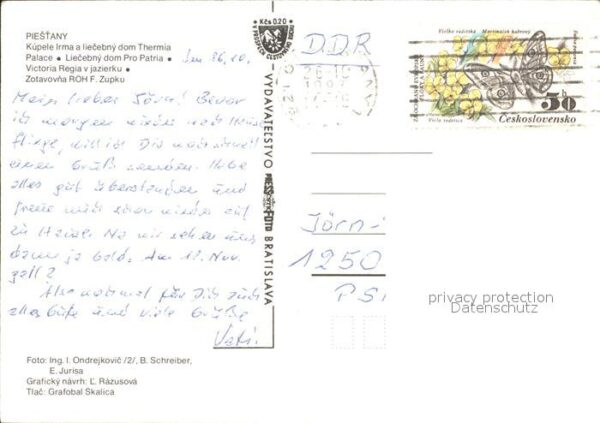 PIEŠŤANY
Kúpele Irma a liečebný dom Thermia
Palace • Liečebný dom Pro Patria •
Victoria Regia v jazierku •
Zotavovňa ROH F. Zupku
26.10.
Mein lieber Jörn! Bevor
ich morgen wieder nach Hause
fliege, will ich Dir noch schnell
einen Gruß senden. Habe
alles gut überstanden und
freue mich schon wieder auf
zu Hause. Na wir sehen uns
dann ja bald. Am 12. Nov.
gell?
Also nochmal für Dich
alles Gute und viele Grüße
Vati.
Foto: Ing. I. Ondrejkovič /2/, B. Schreiber,
E. Jurisa
Grafický návrh: Ľ. Rázusová
Tlač: Grafobal Skalica
Kčs 0,20
VYDAVATEĽSTVO PRESSFOTO BRATISLAVA
D.D.R
50 h
Československo
Jörn
1250
PSF
privacy protection
Datenschutz